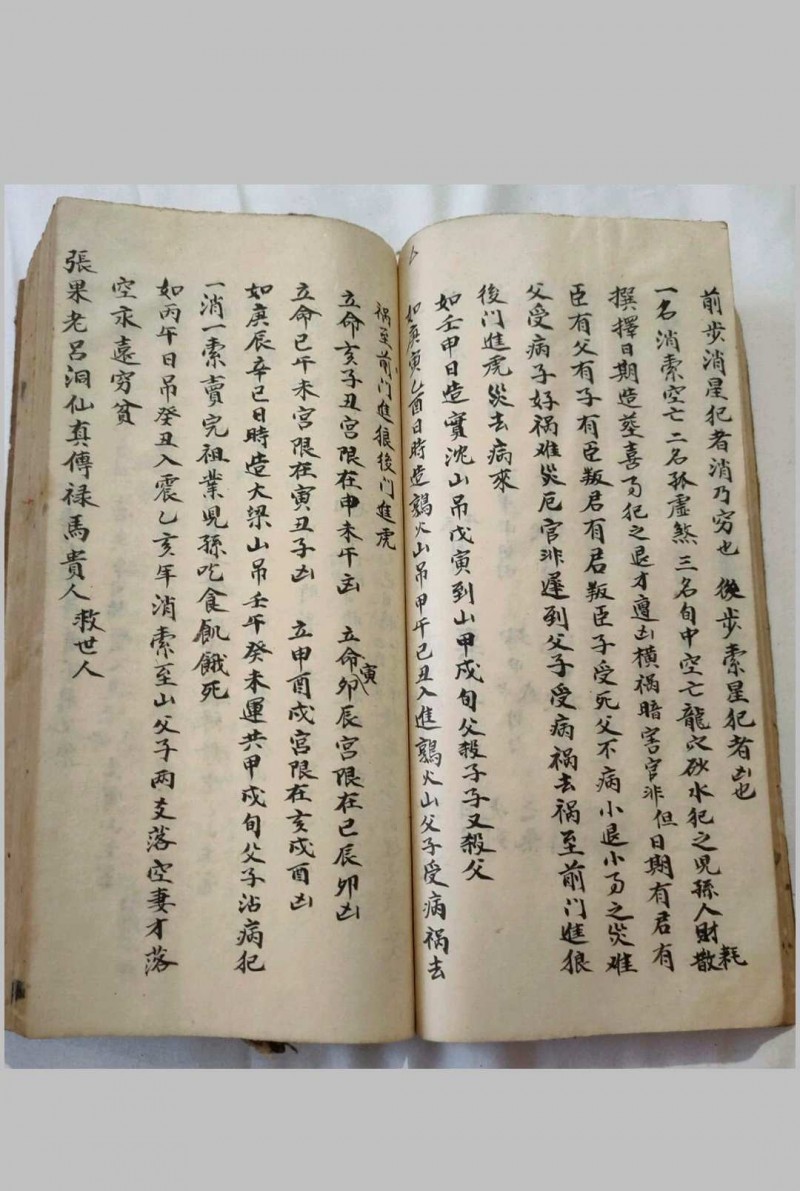 前步消星犯者消乃穷也 後步索星犯者凶也
一名消索空亡二名孤虚煞三名旬中空亡龍穴砂水犯之児孫人財散耗
撰擇日期造塟喜
犯之退才遭凶横禍暗害官非但日期有君有
臣有父有子有臣叛君有君叛臣子受死父不病小退小
之災难
父受病子好禍难災厄官非遲到父子受病禍去禍至前门進狼
後门進虎災去病來
如壬甲日造實沈山吊戊寅到山甲戍旬父殺子子又殺父
如庚寅乙酉日時造鶉火山吊甲午己丑入進鶉火山父子受病禍去
禍至前门進狼後门進虎
立命亥子丑宮限在申未午凶 立命寅卯辰宮限在巳辰卯凶
立命巳午未宮限在寅丑子凶 立申酉戍宮限在亥戍酉凶
如庚辰辛巳日時造大梁山吊壬午癸未運共甲戍旬父子沾病犯
一消一索賣完祖業児孫吃食飢餓死
如丙午日吊癸丑入震乙亥年消索至山父子两支落空妻才落
空永遠穷貧
張果老呂洞仙真傳禄馬貴人救世人